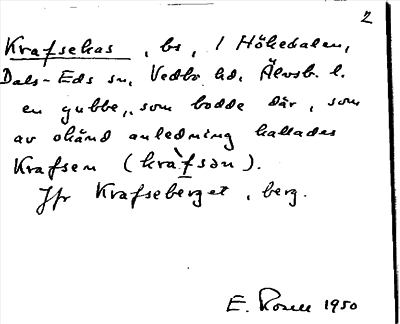 2
Krafsekas, bs, i Hökedalen,
Dals-Eds sn, Vedbo hd, Älvsb. l.
en gubbe, som bodde där, som
av okänd anledning kallades
Krafsen (kràfsən).
Jfr Krafseberget, berg.
E. Rosell 1950